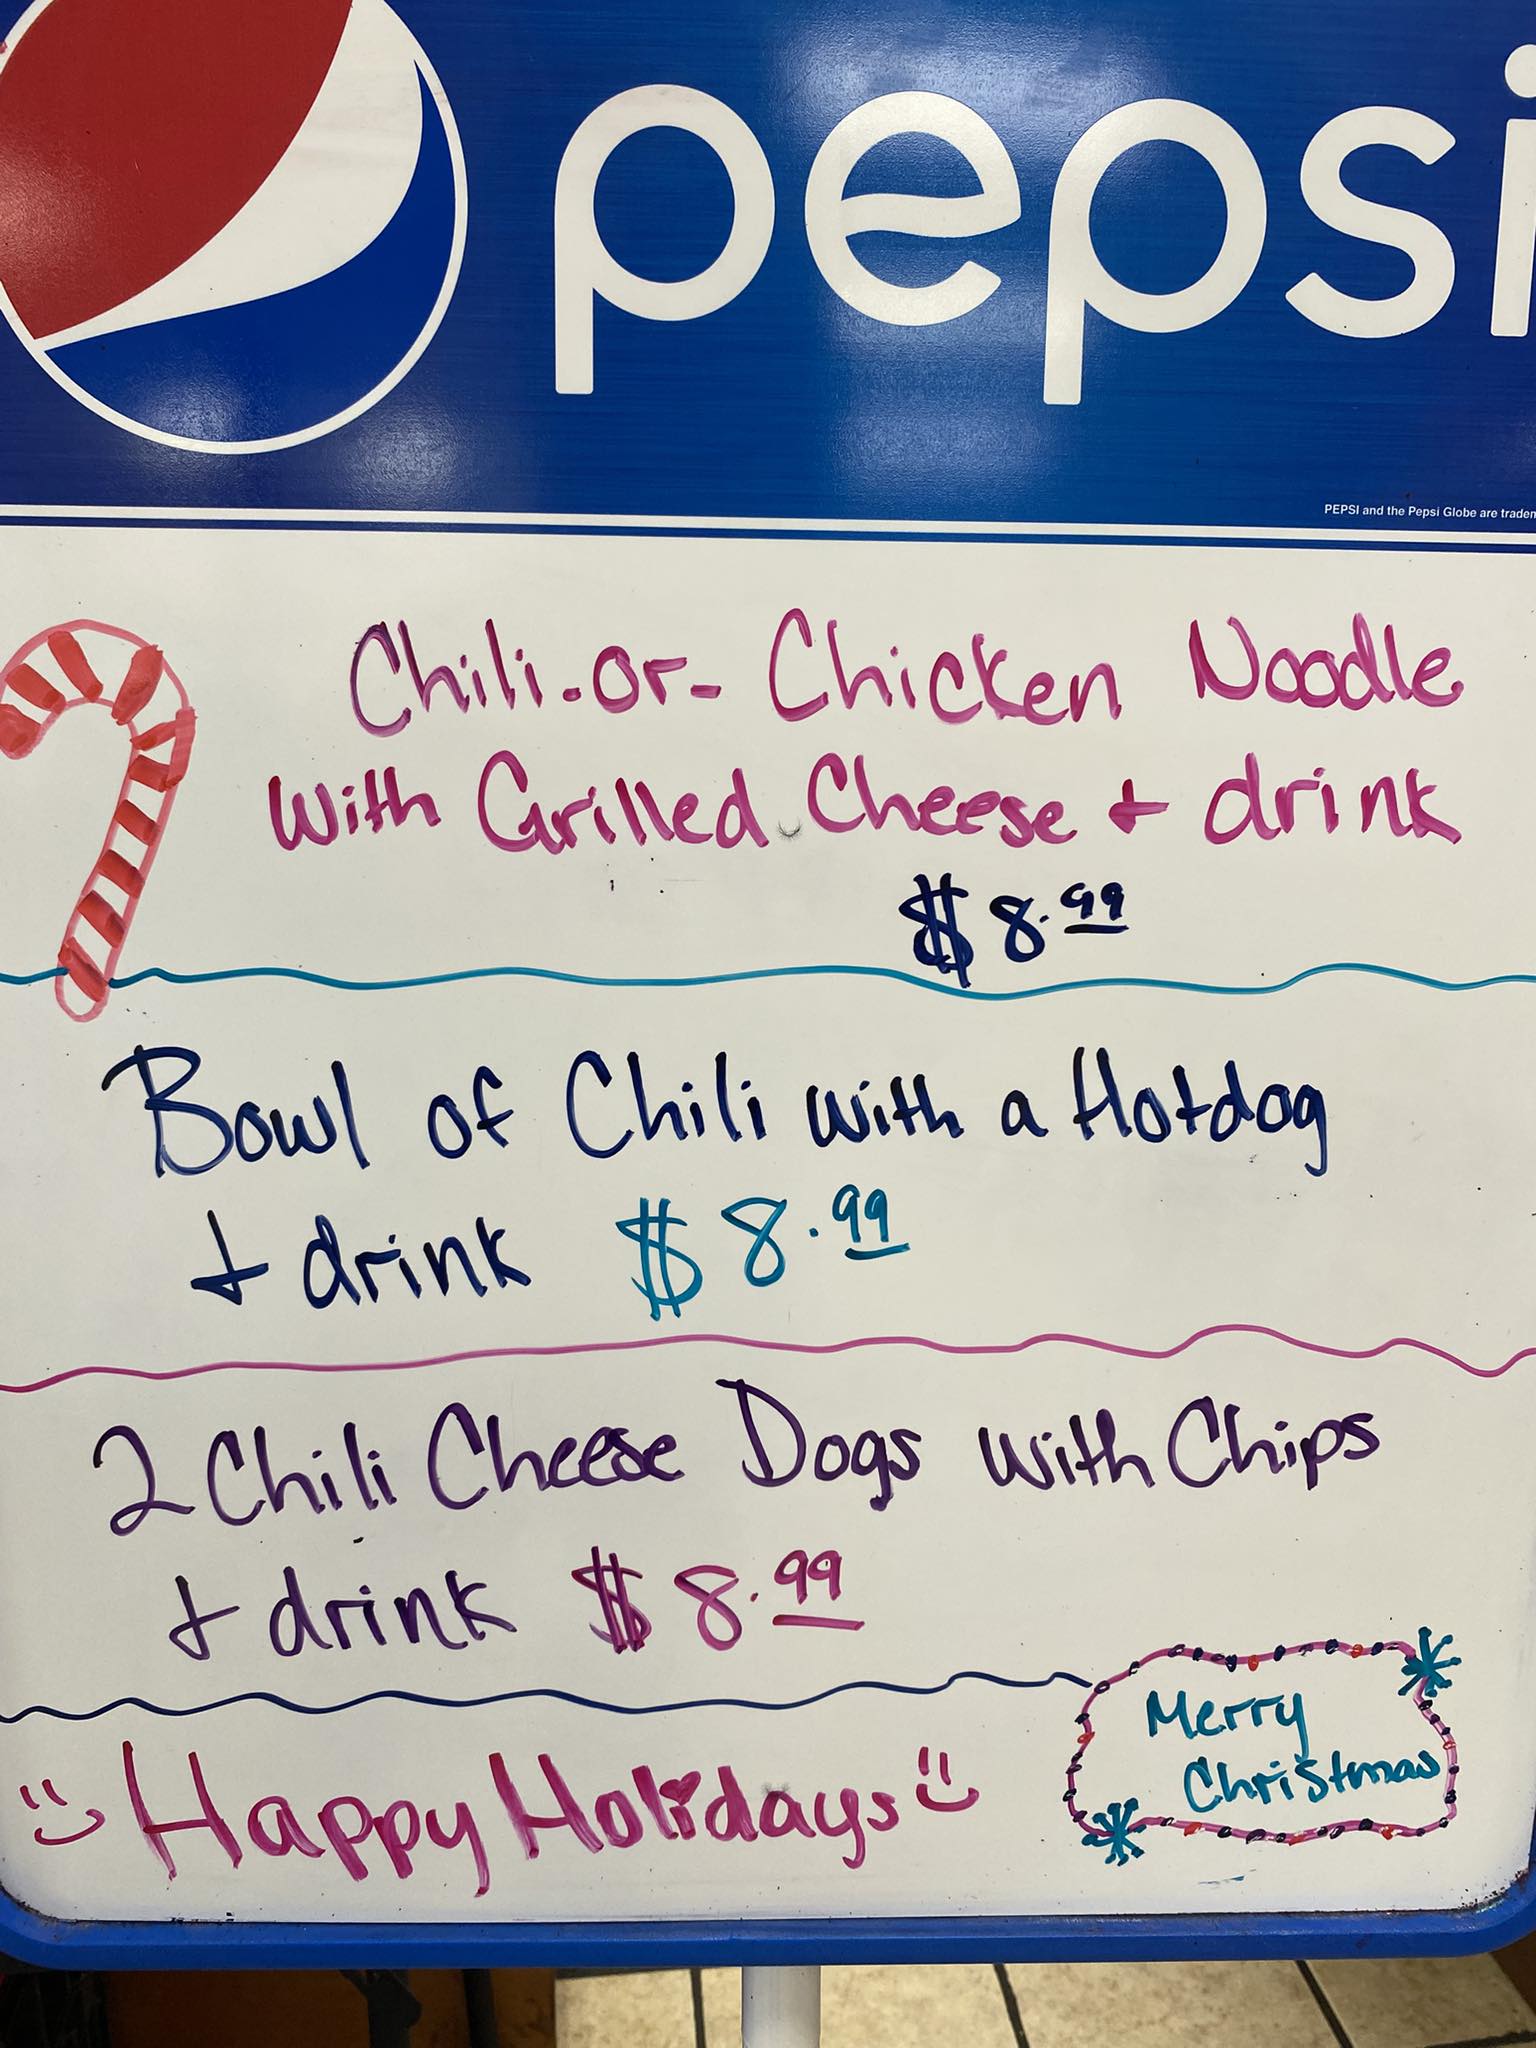 pepsi
PEPSI and the Pepsi Globe are
Chili -or- Chicken Noodle
With Grilled Cheese + drink
$8.99
Bowl of Chili with a Hotdog
+ drink $8.99
2 Chili Cheese Dogs with Chips
+ drink $8.99
Merry
Christmas
Happy Holidays